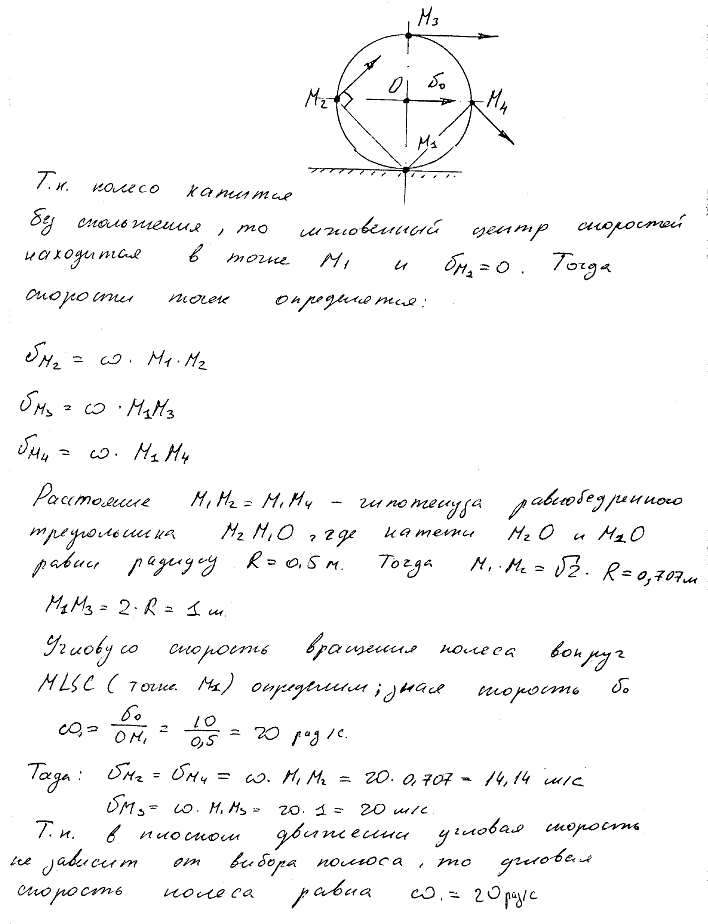 M₃
M₂
O
v₀
M₄
M₁
Т.к. колесо катится
без скольжения, то мгновенный центр скоростей
находится в точке M₁ и v_M₁ = 0. Тогда
скорости точек определятся:
v_M₂ = ω · M₁·M₂
v_M₃ = ω · M₁M₃
v_M₄ = ω · M₁M₄
Расстояние M₁M₂ = M₁M₄ – гипотенуза равнобедренного
треугольника M₂M₁O, где катеты M₂O и M₁O
равны радиусу R = 0,5 м. Тогда M₁·M₂ = √2 · R = 0,707 м
M₁M₃ = 2·R = 1 м.
Угловую скорость вращения колеса вокруг
МЦС (точк. M₁) определим, зная скорость v₀
ω = v₀/OM₁ = 10/0,5 = 20 рад/с.
Тогда: v_M₂ = v_M₄ = ω · M₁M₂ = 20 · 0,707 = 14,14 м/с
v_M₃ = ω · M₁M₃ = 20 · 1 = 20 м/с.
Т.к. в плоском движении угловая скорость
не зависит от выбора полюса, то угловая
скорость колеса равна ω = 20 рад/с